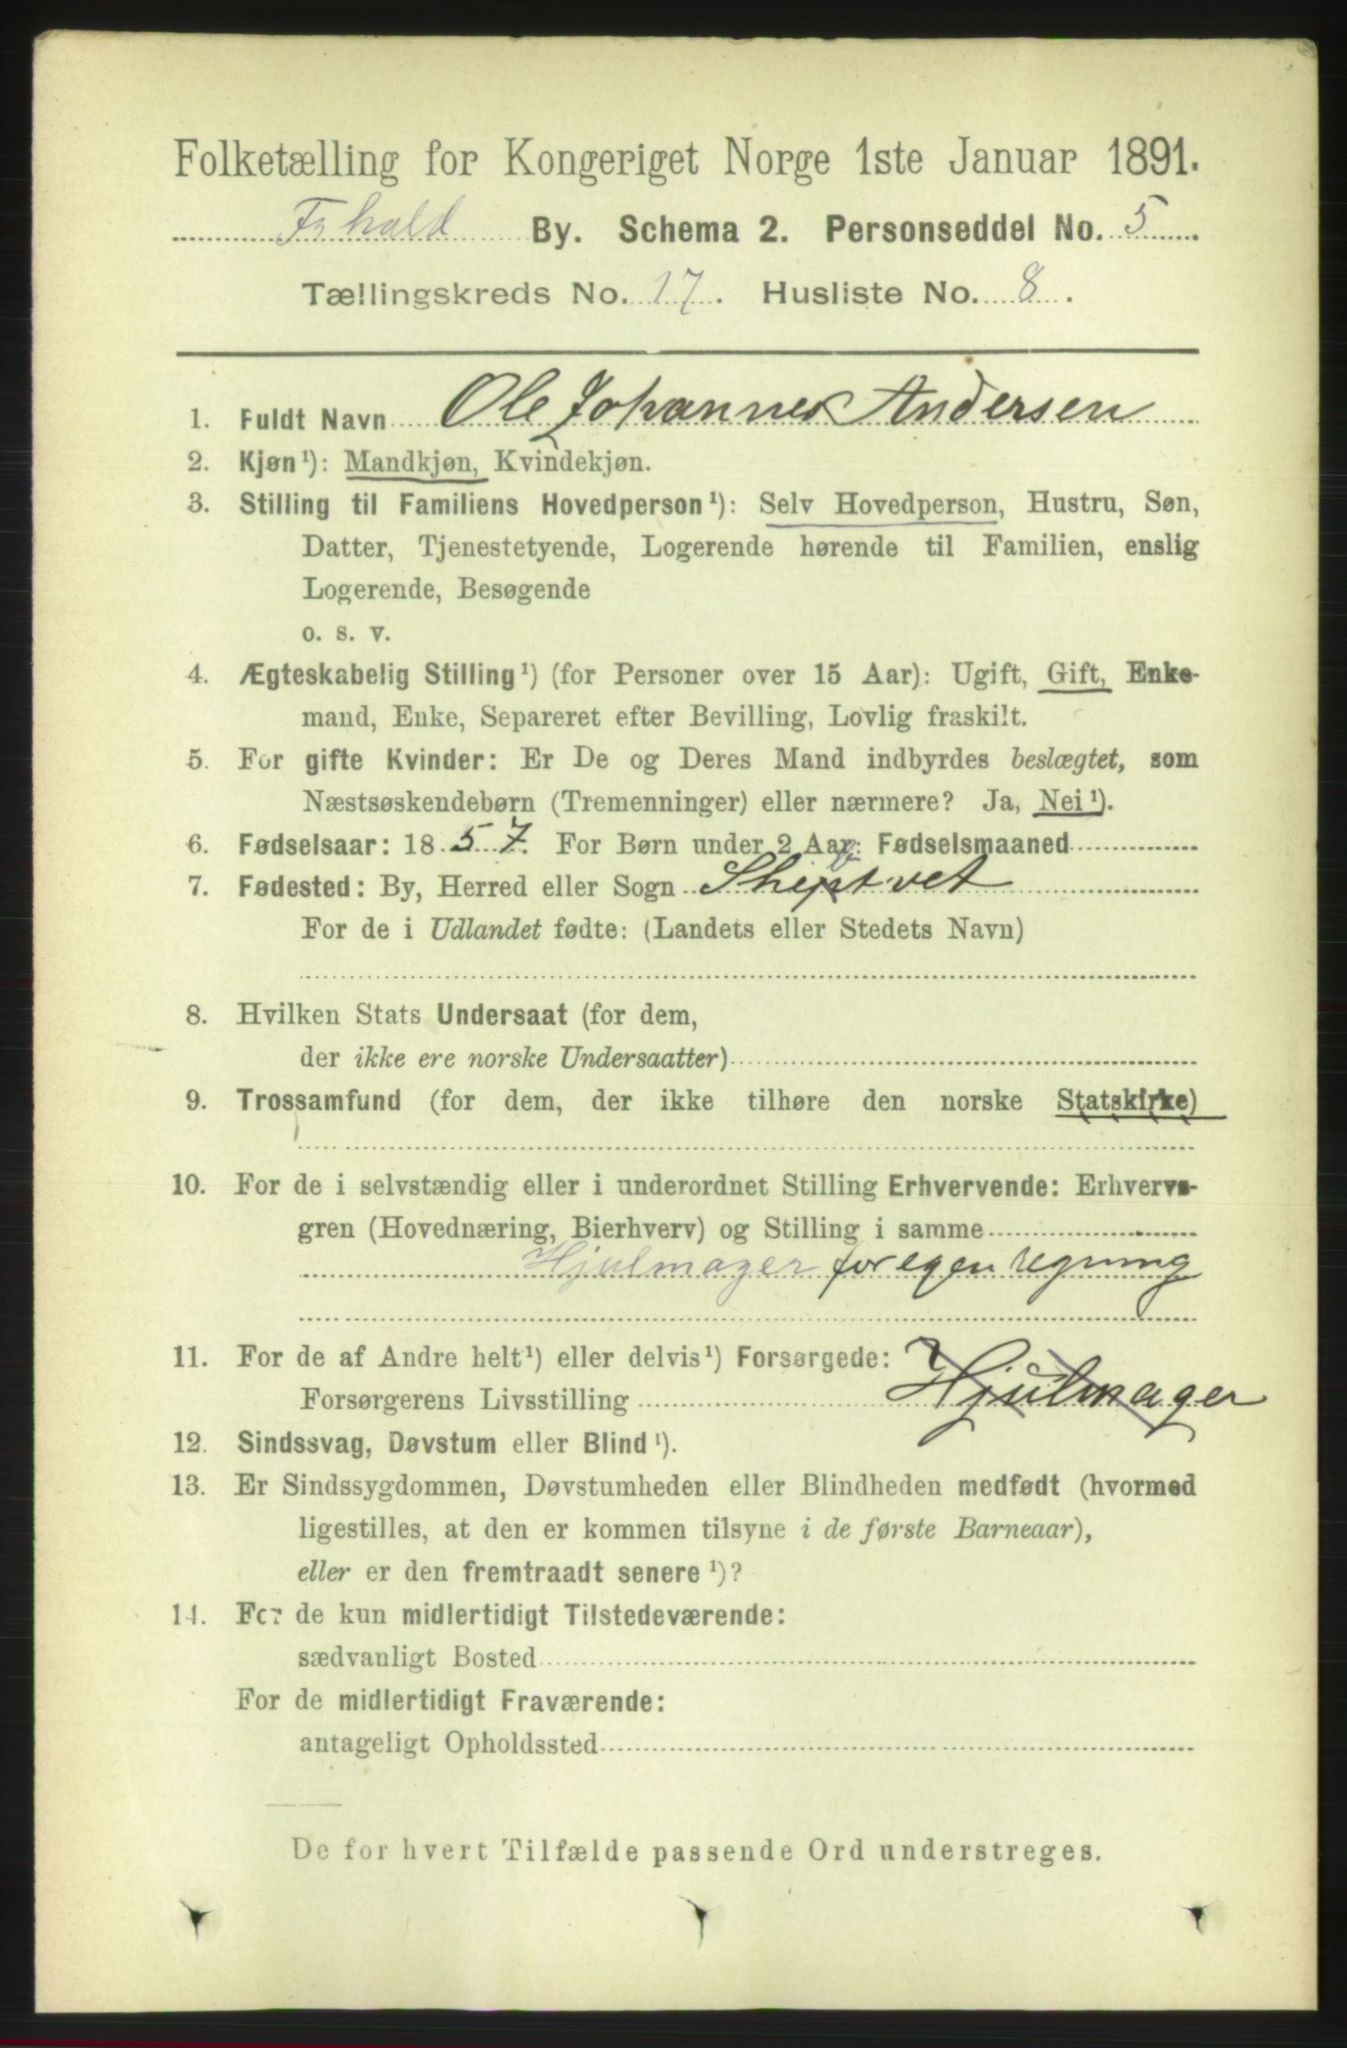 Folketælling for Kongeriget Norge 1ste Januar 1891.
Frhald By. Schema 2. Personseddel No. 5
Tællingskreds No. 17. Husliste No. 8.
1. Fuldt Navn Ole Johannes Andersen
2. Kjøn¹): Mandkjøn, Kvindekjøn.
3. Stilling til Familiens Hovedperson¹): Selv Hovedperson, Hustru, Søn,
Datter, Tjenestetyende, Logerende hørende til Familien, enslig
Logerende, Besøgende
o. s. v.
4. Ægteskabelig Stilling¹) (for Personer over 15 Aar): Ugift, Gift, Enke-
mand, Enke, Separeret efter Bevilling, Lovlig fraskilt.
5. For gifte Kvinder: Er De og Deres Mand indbyrdes beslægtet, som
Næstsøskendebørn (Tremenninger) eller nærmere? Ja, Nei¹).
6. Fødselsaar: 1857. For Børn under 2 Aar: Fødselsmaaned
7. Fødested: By, Herred eller Sogn
For de i Udlandet fødte: (Landets eller Stedets Navn)
8. Hvilken Stats Undersaat (for dem,
der ikke ere norske Undersaatter)
9. Trossamfund (for dem, der ikke tilhøre den norske Statskirke)
10. For de i selvstændig eller i underordnet Stilling Erhvervende: Erhvervs-
gren (Hovednæring, Bierhverv) og Stilling i samme
Hjulmager for egen regning
11. For de af Andre helt¹) eller delvis¹) Forsørgede:
Forsørgerens Livsstilling Hjulmager
12. Sindssvag, Døvstum eller Blind¹).
13. Er Sindssygdommen, Døvstumheden eller Blindheden medfødt (hvormed
ligestilles, at den er kommen tilsyne i de første Barneaar),
eller er den fremtraadt senere¹)?
14. For de kun midlertidigt Tilstedeværende:
sædvanligt Bosted
For de midlertidigt Fraværende:
antageligt Opholdssted
De for hvert Tilfælde passende Ord understreges.